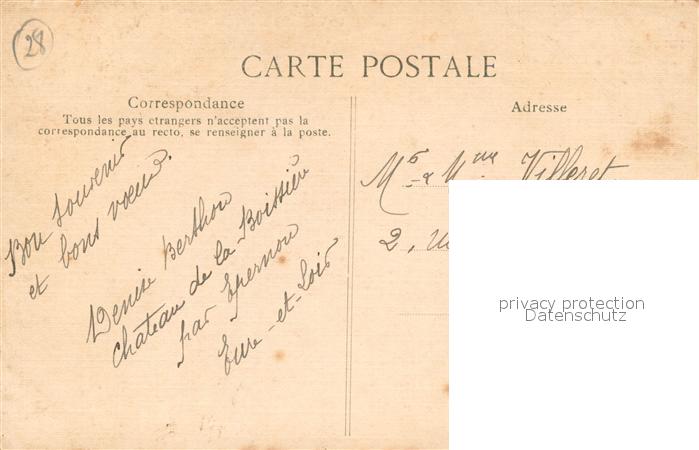 28
CARTE POSTALE
Correspondance
Tous les pays etrangers n'acceptent pas la
correspondance au recto, se renseigner à la poste.
Bon souvenir
et bons vœux.
Denise Berthou
château de la Boissière
par Epernon
Eure-et-Loir
Adresse
Mr & Mme Villeret
2,
privacy protection
Datenschutz